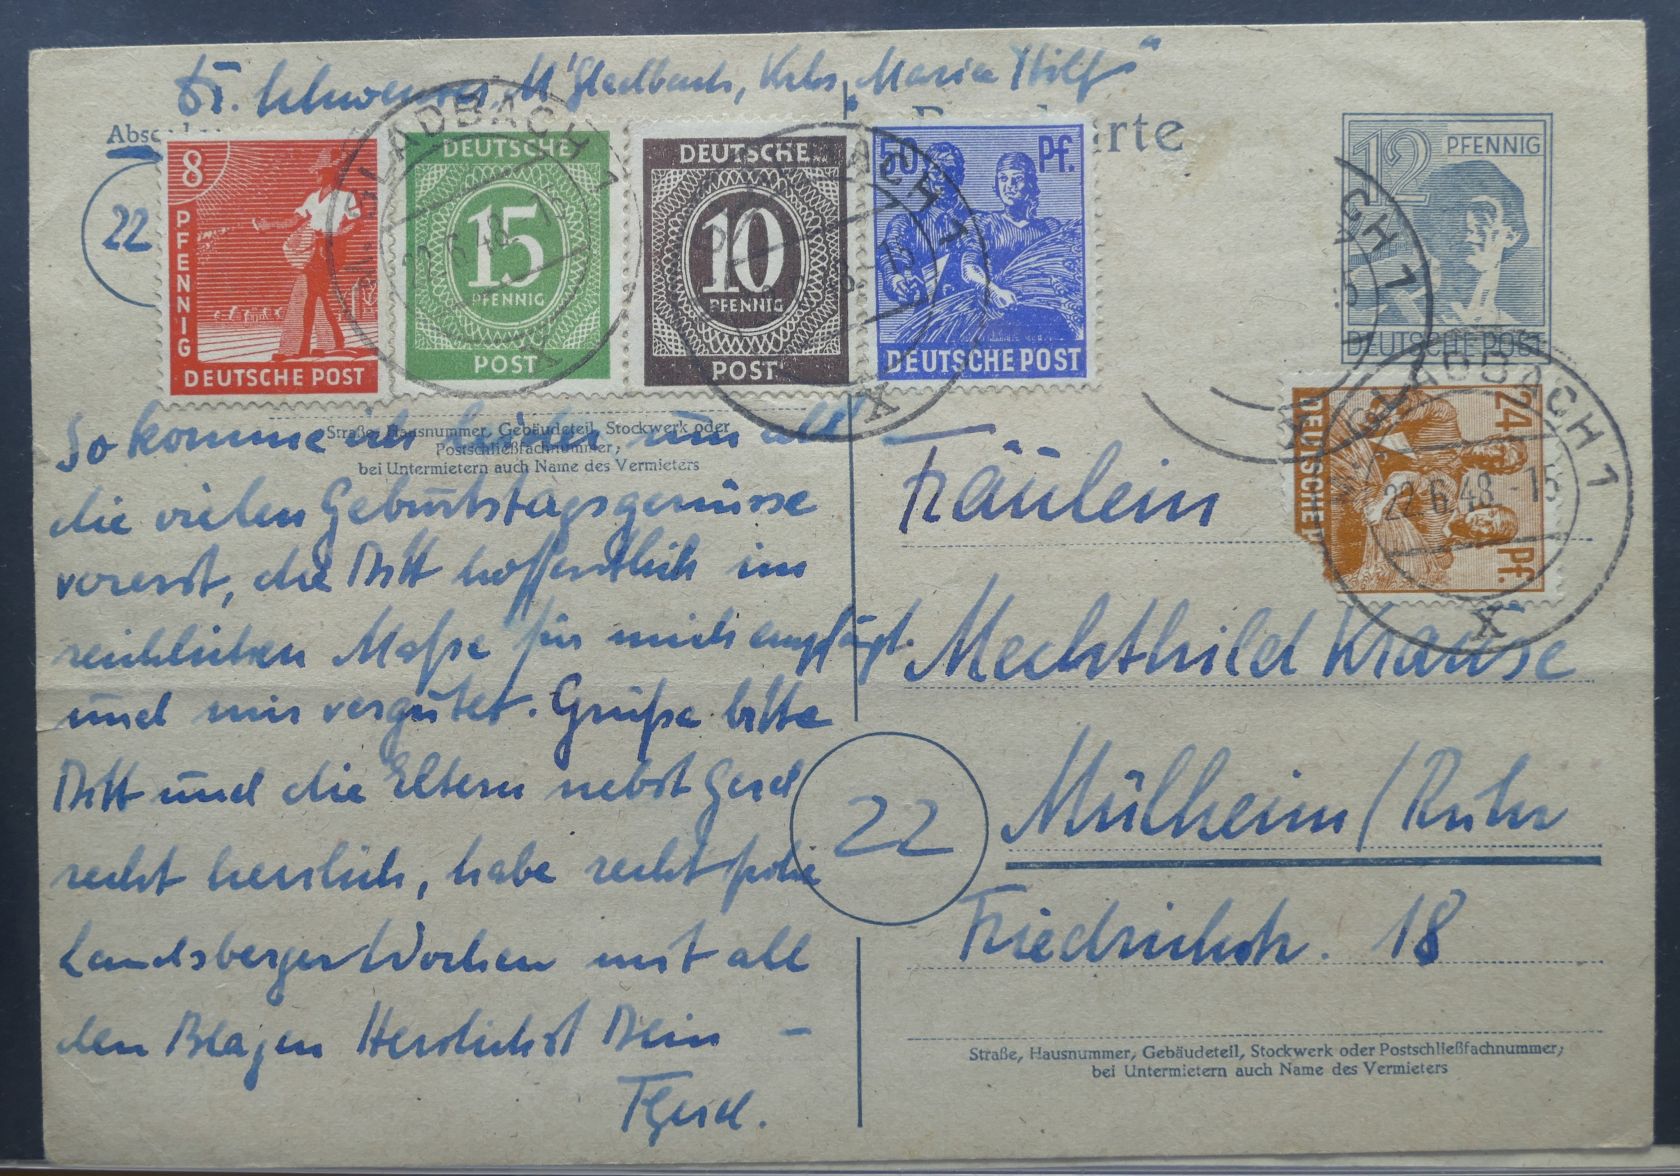 Dr. Schwenger, M'Gladbach, Krhs „Maria Hilf"
Postkarte
12 PFENNIG
DEUTSCHE POST
22
8
PFENNIG
DEUTSCHE POST
DEUTSCHE
15
PFENNIG
POST
DEUTSCHE
10
PFENNIG
POST
50 Pf.
DEUTSCHE POST
24 Pf.
DEUTSCHE P
GLADBACH 1
22.6.48.-18
X
GLADBACH 1
22.6.48
X
BACH 1
X
CH 1
Straße, Hausnummer, Gebäudeteil, Stockwerk oder
Postschließfachnummer;
bei Untermietern auch Name des Vermieters
So komme ich leider um all
die vielen Geburtstagsgenüsse
vorerst, die Ditt hoffentlich im
reichlichen Maße für mich empfängt
und mir vergütet. Grüße bitte
Ditt und die Eltern nebst Gerd
recht herzlich, habe recht frohe
Landsberger Wochen mit all
den Blagen Herzlichst Dein –
Gerd.
Fräulein
Mechthild Krause
22
Mülheim/Ruhr
Friedrichstr. 18
Straße, Hausnummer, Gebäudeteil, Stockwerk oder Postschließfachnummer;
bei Untermietern auch Name des Vermieters